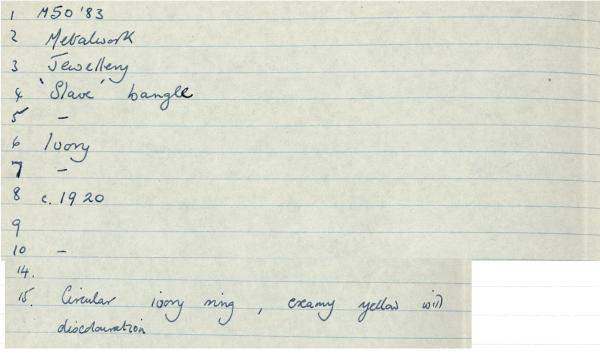 1 M50 '83
2 Metalwork
3 Jewellery
4 'Slave' bangle
5 -
6 Ivory
7 -
8 c. 1920
9
10 -
14.
15. Circular ivory ring, creamy yellow with
discolouration